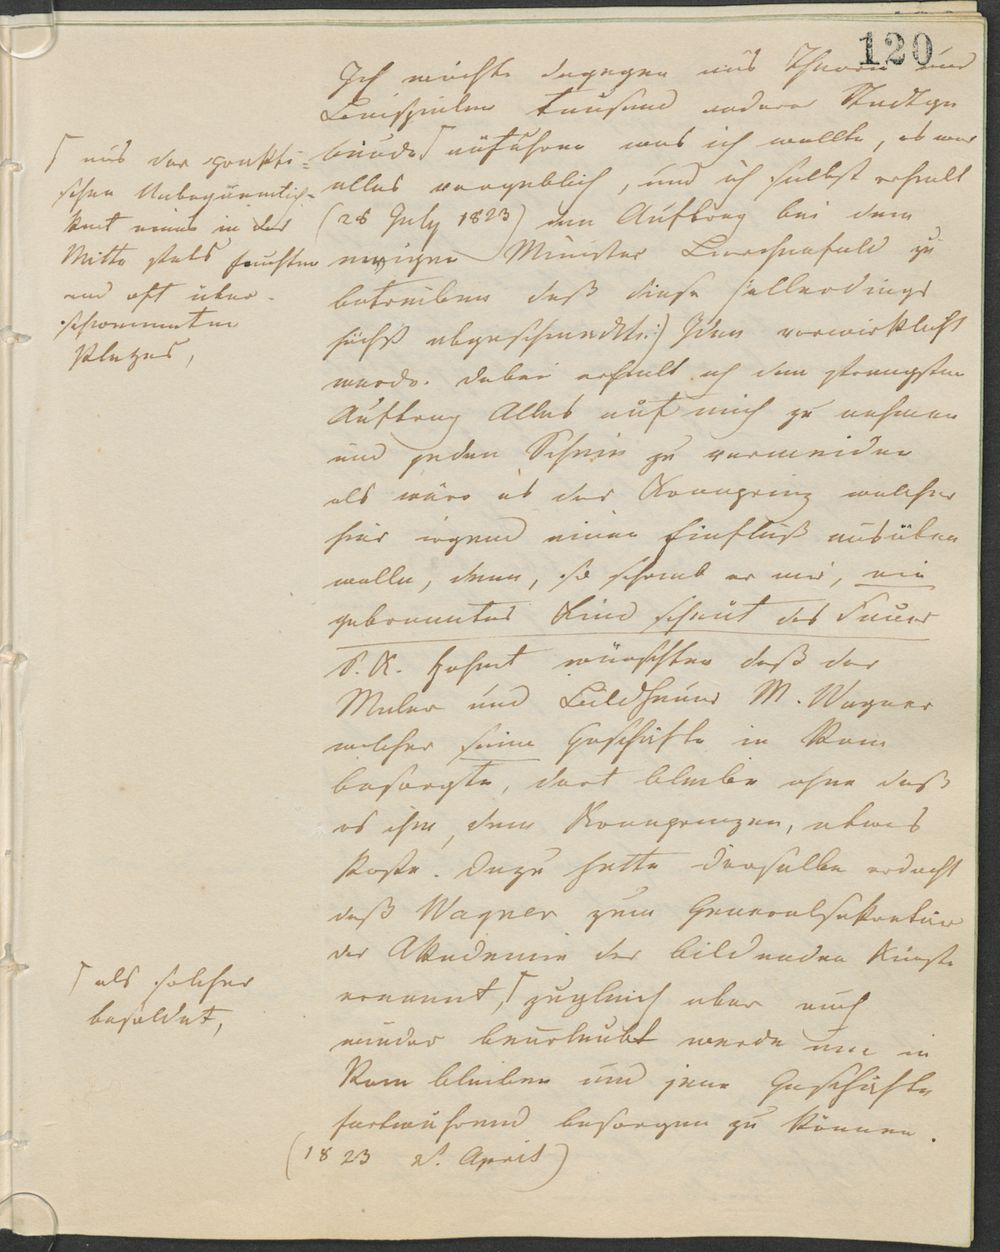 120
Ich mochte dagegen aus Theorie und
Beispielen tausend anderer Stadtge
bäude ⌈ anführen was ich wollte, es war
alles vergeblich, und ich selbst erhielt
(28 July 1823) den Auftrag bei dem
Minister Lerchenfeld zu
betreiben daß diese (allerdings
höchst abgeschmackte:) Idee verwirklicht
werde. Dabei erhielt ich den strengsten
Auftrag Alles auf mich zu nehmen
und jeden Schein zu vermeiden
als wäre es der Kronprinz welcher
hier irgend einen Einfluß ausüben
wolle, denn, so schrieb er mir, ein
gebranntes Kind scheut das Feuer
S. K. Hoheit wünschten daß der
Maler und Bildhauer M. Wagner
welcher seine Geschäfte in Rom
besorgte, dort bleibe ohne daß
es ihm, dem Kronprinzen, etwas
koste. Dazu hatte derselbe erdacht
daß Wagner zum Generalsekretär
der Akademie der bildenden Künste
ernannt, ⌈ zugleich aber auch
wieder beurlaubt werde um in
Rom bleiben und jene Geschäfte
fortwährend besorgen zu können.
(1823 April)
⌈ aus der prakti=
schen Unbequemlich-
keit eines in der
Mitte stets feuchten
und oft über-
schwemmten
Platzes,
⌈ als solcher
besoldet,